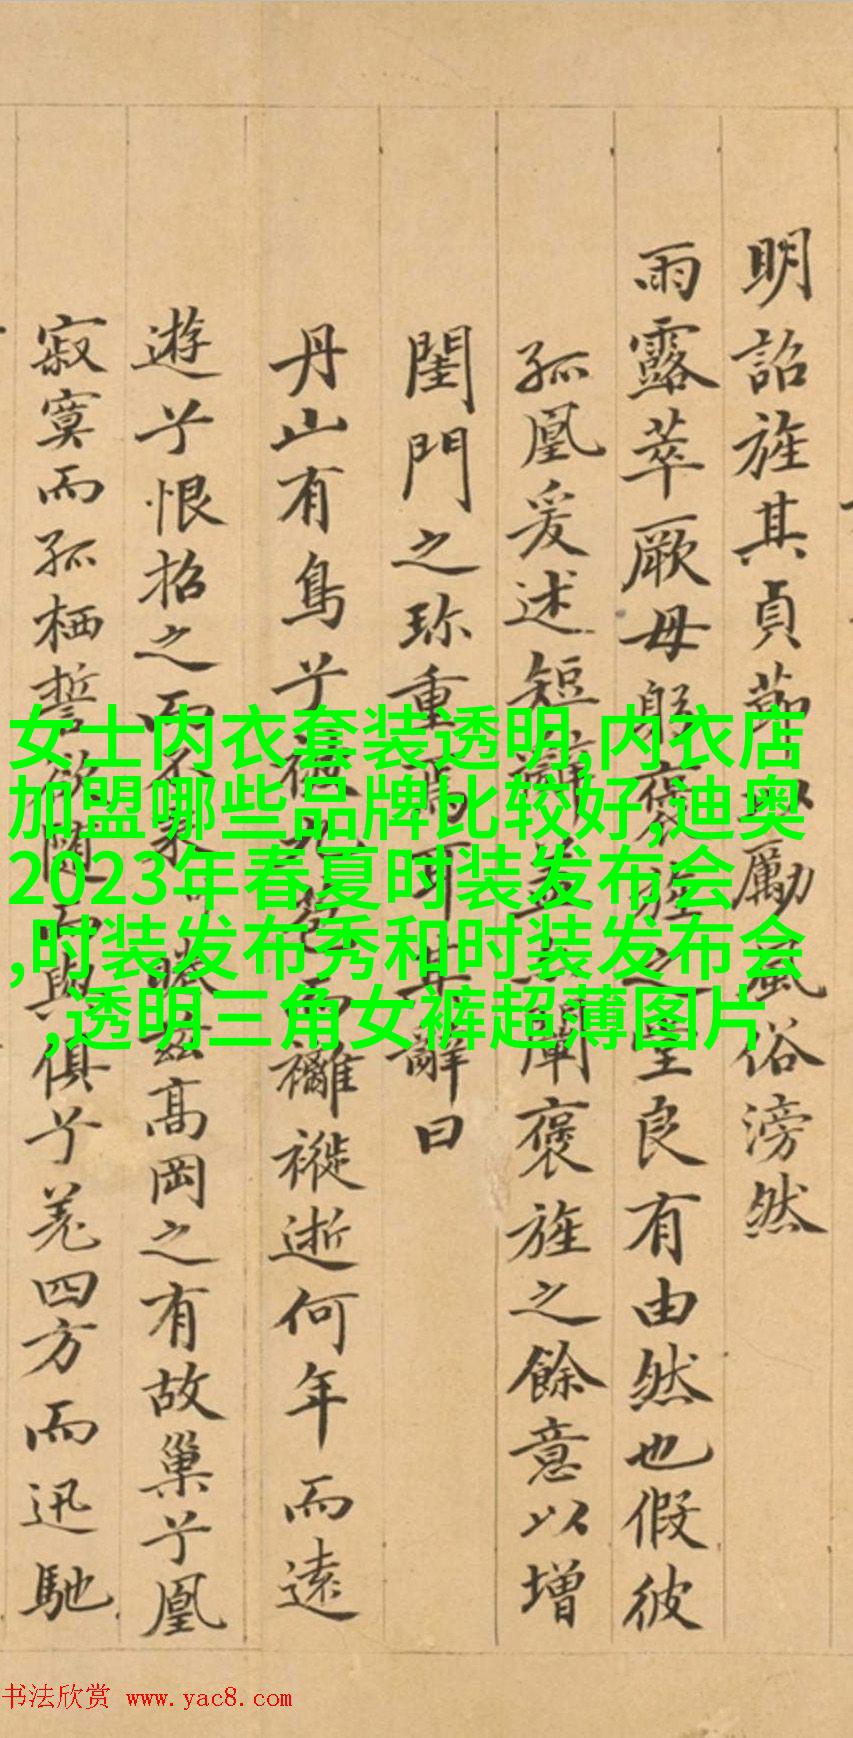 明詔旌其貞節以勵風俗滂然
雨露萃厥母躬褒旌之良有由然也假彼
孤凰爰述短辭蓋以闡褒旌之餘意以增
閨門之珎重焉其辭曰
丹山有鳥兮被九苞而襹褷逝何年而遠
遊兮恨招之而不来茲高岡之有故巢兮凰
寂寞而孤栖誓欲隨而與俱兮羌四方而迅馳
女士内衣套装透明,内衣店
加盟哪些品牌比较好,迪奥
2023年春夏时装发布会
,时装发布秀和时装发布会
,透明三角女裤超薄图片
书法欣赏 www.yac8.com